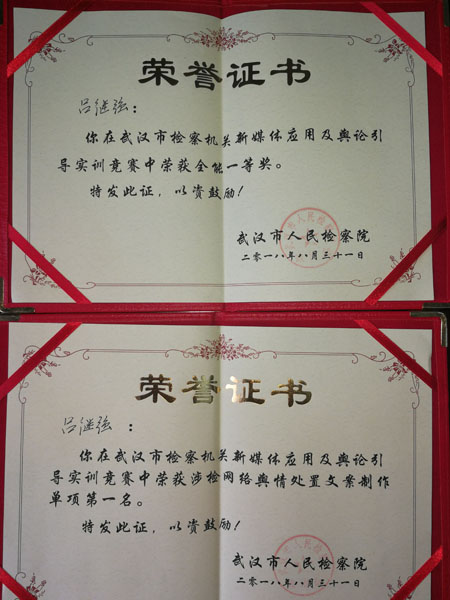 荣誉证书
吕继强：
你在武汉市检察机关新媒体应用及舆论引
导实训竞赛中荣获全能一等奖。
特发此证，以资鼓励！
武汉市人民检察院
二零一八年八月三十一日
荣誉证书
吕继强：
你在武汉市检察机关新媒体应用及舆论引
导实训竞赛中荣获涉检网络舆情处置文案制作
单项第一名。
特发此证，以资鼓励！
武汉市人民检察院
二零一八年八月三十一日